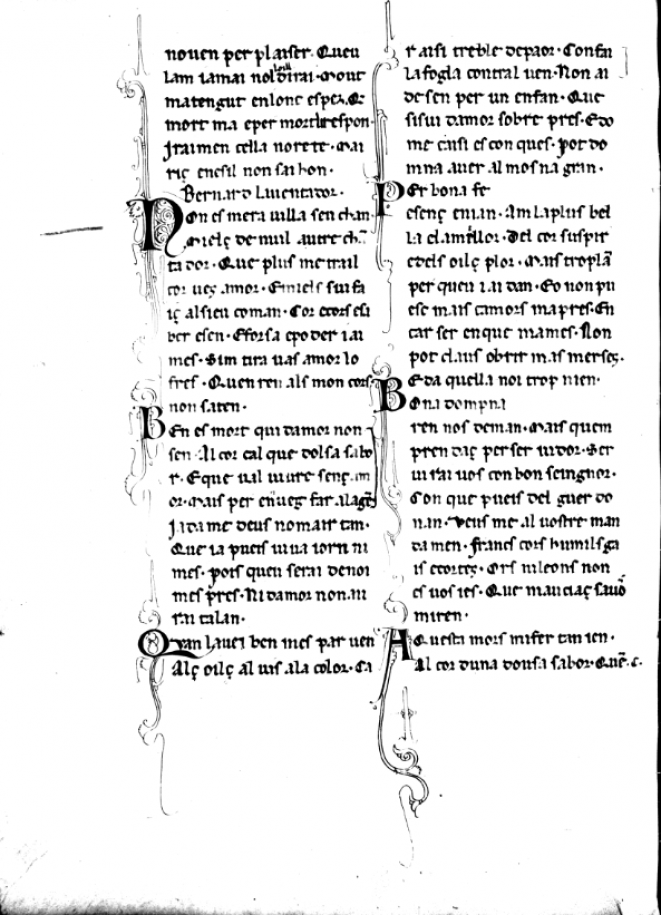 nouen per plaiser. Queu
lam iamai nol dirai. Mout
matengut enlonc esper. Qe
mort ma e per mort li respon.
Jraimen cella noretè. Mai
riç enesil non sai hon.
Bernard Luentador.
Non es mera uilla sen chan.
Mielç de nuil autre chã
tador. Que plus me trail
cor ueç amor. Emiels sui fa
iç alsieu coman. Cor ecors esa
ber esen. Eforsa epoder iai
mes. Sim tira uas amor lo
fres. Quen ren als mon cors
non saten.
Ben es mort qui damor non
sen. Al cor cal que dolsa sabo
r. Eque ual uiure senç am
or. Mais per enueg far alagẽt
Ja dame deus nomair tan.
Que ia pueis uiua iorn ni
mes. Pois queu serai denoi
mes pres. Ni damor non ai
rai talan.
Qvan lauei ben mes par uen
Alç oilç al uis ala color. Ca
r aisi treble depaor. Confai
la fogla contral uen. Non ai
de sen per un enfan. Que
sisui damor sobre pres. Edo
me caisi es con ques. Pot do
mna auer al mosna gran.
Per bona fe
esenç enian. Am laplus bel
la el ameillor. Del cor suspir
edels oilç plor. Mais troplã
per queu iai dan. Eo non pu
esc mais camors mapres. En
car ser en que mames. Non
pot claus obrir mas merses.
E da quella noi trop nien.
Bona dompna
ren nos deman. Mais quem
prendaç per seruidor. Ser
uirai uos con bon seingnor.
Con que pueis del guer do
nan. Veus me al uostre man
damen. Francs cors humils ga
is ecortes. Ors nileons non
es uos ies. Que mauciaç sauo
miren.
Aquesta mors mi fer tan ien.
Al cor duna dousa sabor. Quẽ. c.